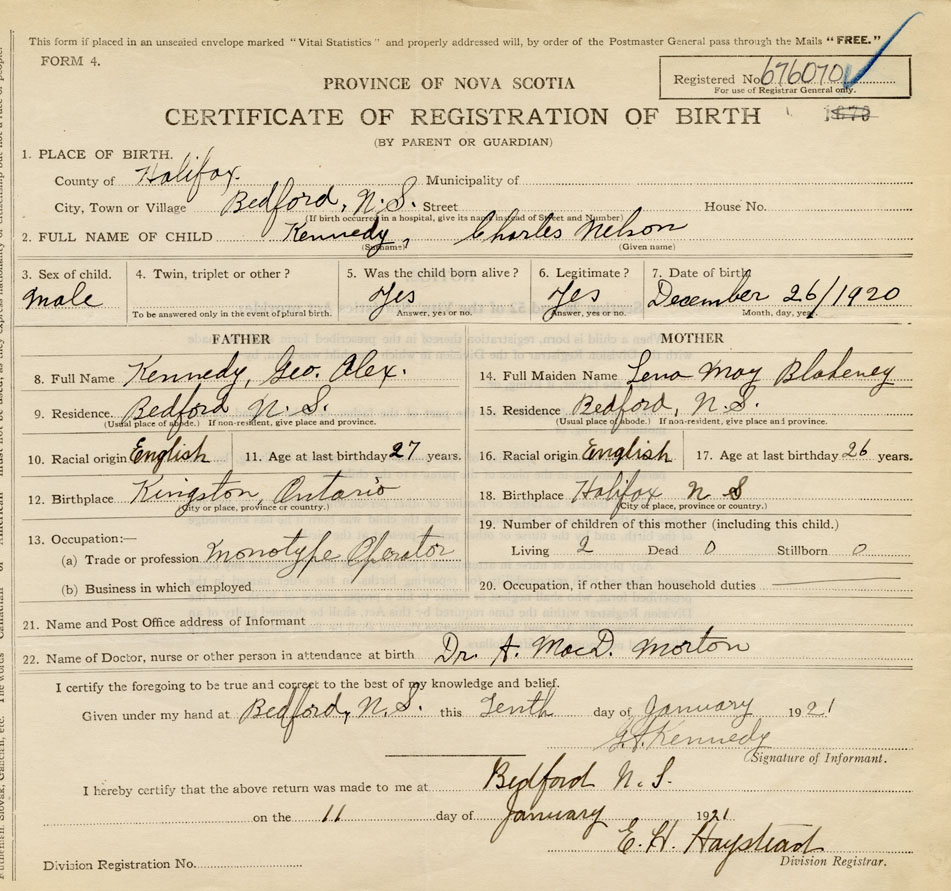 This form if placed in an unsealed envelope marked "Vital Statistics" and properly addressed will, by order of the Postmaster General pass through the Mails "FREE."
FORM 4.
Registered No. 676070
For use of Registrar General only.
PROVINCE OF NOVA SCOTIA
CERTIFICATE OF REGISTRATION OF BIRTH
(BY PARENT OR GUARDIAN)
1. PLACE OF BIRTH.
County of Halifax. Municipality of
City, Town or Village Bedford, N.S. Street House No.
(If birth occurred in a hospital, give its name instead of Street and Number)
2. FULL NAME OF CHILD Kennedy, Charles Nelson
(Surname) (Given name)
3. Sex of child. 4. Twin, triplet or other? 5. Was the child born alive? 6. Legitimate? 7. Date of birth
Male Yes Yes December 26/1920
To be answered only in the event of plural birth. Answer, yes or no. Answer, yes or no. Month, day, year.
FATHER MOTHER
8. Full Name Kennedy, Geo. Alex. 14. Full Maiden Name Lena May Blakeney
9. Residence. Bedford N.S. 15. Residence Bedford, N.S.
(Usual place of abode.) If non-resident, give place and province. (Usual place of abode.) If non-resident, give place and province.
10. Racial origin English 11. Age at last birthday 27 years. 16. Racial origin English 17. Age at last birthday 26 years.
12. Birthplace Kingston, Ontario 18. Birthplace Halifax N S
(City or place, province or country.) (City or place, province or country.)
13. Occupation:— 19. Number of children of this mother (including this child.)
(a) Trade or profession Monotype Operator Living 2 Dead 0 Stillborn 0
(b) Business in which employed 20. Occupation, if other than household duties
21. Name and Post Office address of Informant
22. Name of Doctor, nurse or other person in attendance at birth Dr. A. MacD. Morton
I certify the foregoing to be true and correct to the best of my knowledge and belief.
Given under my hand at Bedford, N.S. this Tenth day of January 1921
G.A. Kennedy
Signature of Informant.
I hereby certify that the above return was made to me at Bedford N.S.
on the 11 day of January 1921
E. H. Haystead
Division Registrar.
Division Registration No.